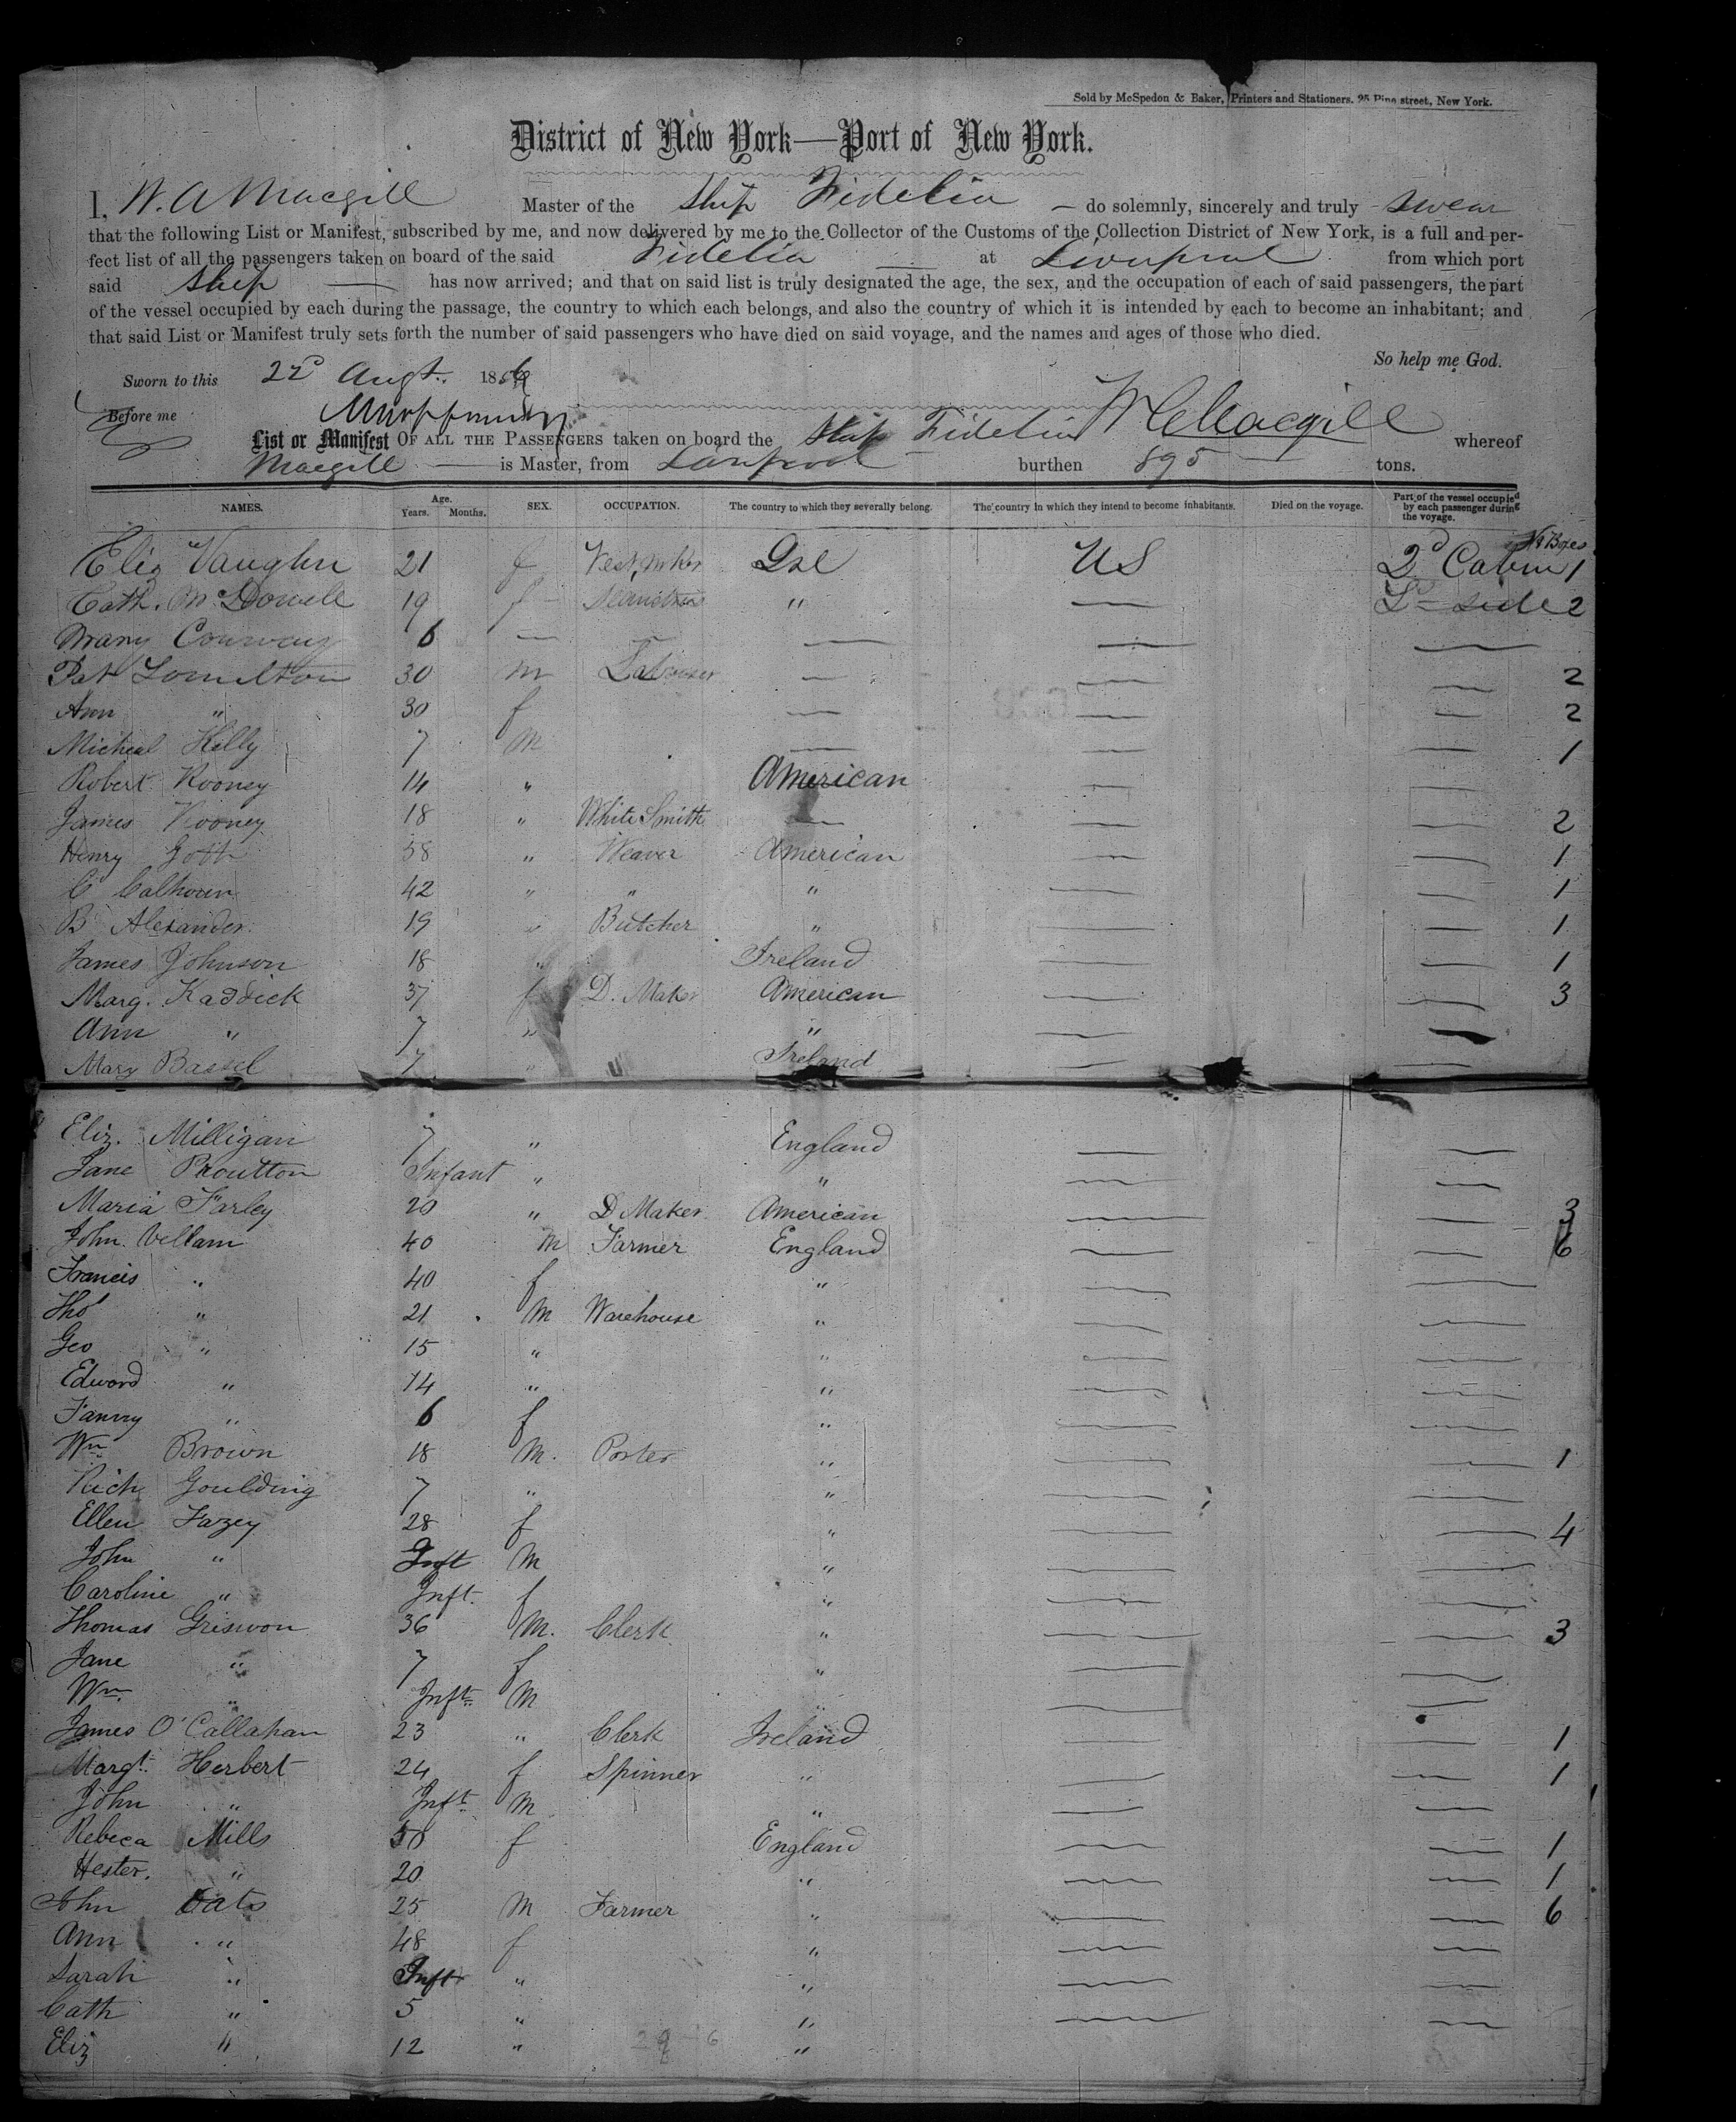 Sold by McSpedon & Baker, Printers and Stationers, 25 Pine street, New York.
District of New York—Port of New York.
I, W. A Macgill Master of the Ship Fidelia — do solemnly, sincerely and truly swear
that the following List or Manifest, subscribed by me, and now delivered by me to the Collector of the Customs of the Collection District of New York, is a full and per-
fect list of all the passengers taken on board of the said Fidelia — at Liverpool from which port
said Ship — has now arrived; and that on said list is truly designated the age, the sex, and the occupation of each of said passengers, the part
of the vessel occupied by each during the passage, the country to which each belongs, and also the country of which it is intended by each to become an inhabitant; and
that said List or Manifest truly sets forth the number of said passengers who have died on said voyage, and the names and ages of those who died.
So help me God.
Sworn to this 22d Augt. 185
Before me
Macgill
List or Manifest OF ALL THE PASSENGERS taken on board the Ship Fidelia whereof
Macgill — is Master, from Liverpool burthen 895 — tons.
NAMES. Age. Years. Months. SEX. OCCUPATION. The country to which they severally belong. The country in which they intend to become inhabitants. Died on the voyage. Part of the vessel occupied by each passenger during the voyage.
Eliz Vaughn 21 f Vest mker US 2d Cabin 1
Cath. McDowell 19 f " — 2
Mary Conway 6 — — — —
Pat 30 m Labourer — — — 2
Ann " 30 f — — — 2
Micheal Kelly 7 M — — — 1
Robert Rooney 14 " American — —
James Rooney 18 " White Smith — — — 2
Henry Goth 58 " Weaver American — — 1
C Calhoun 42 " " " — — 1
B Alexander 19 " Butcher " — — 1
James Johnson 18 " Ireland — — 1
Marg. Kaddick 37 f D. Maker American — — 3
Ann " 7 " " — —
Mary Bassel 7 " Ireland — —
Eliz. Milligan 7 " England — —
Jane Proutton Infant " " — —
Maria Farley 20 " D Maker American — — 3
John Vellam 40 M Farmer England — — 6
Francis " 40 f " — —
Tho " 21 M Warehouse " — —
Geo " 15 " " — —
Edward " 14 " " — —
Fanny " 6 f " — —
Wm Brown 18 M. Porter " — — 1
Rich Goulding 7 " " — —
Ellen Fazey 28 f " — — 4
John " Inft M " — —
Caroline " Inft. f " — —
Thomas Griswon 36 M. Clerk " — — 3
Jane " 7 f " — —
Wm. " Inft. M " — —
James O'Callahan 23 " Clerk Ireland — — 1
Margt. Herbert 24 f Spinner " — — 1
John " Inft M " — —
Rebeca Mills 50 f England — — 1
Hester. " 20 " — — 1
John Oats 25 M Farmer " — — 6
Ann " 48 f " — —
Sarah " Inft " " — —
Cath " 5 " " — —
Eliz " 12 " "